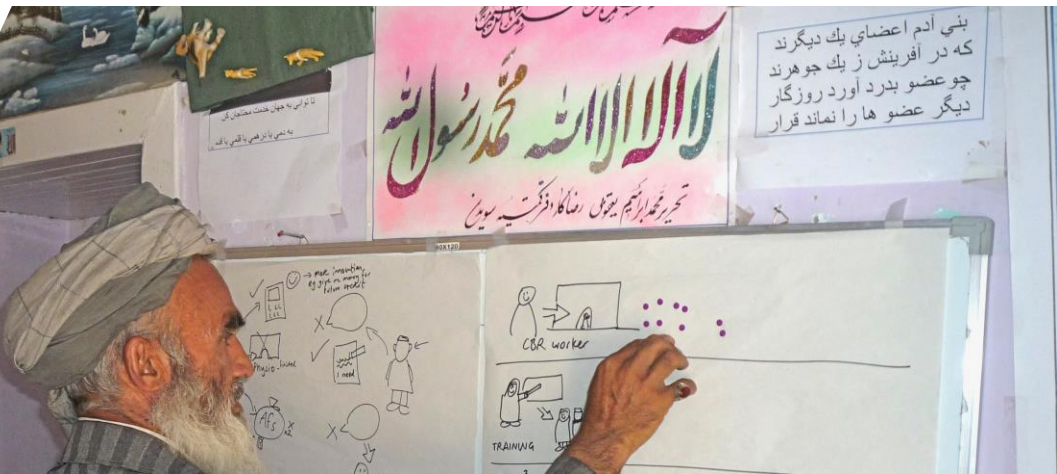 بني آدم اعضاي يك ديگرند
كه در آفرينش ز يك جوهرند
چو عضو بدرد آورد روزگار
ديگر عضو ها را نماند قرار
لا آله الا الله محمد رسول الله
تحرير محمد ابراهيم يعقوبلی رضاكار دفتر كميته سويدن
تا تواني به جهان خدمت محتاجان كن
به دمي يا درهمي يا قلمي يا قدمي
80X120
→ more innovation,
eg give us money for
future credit
Physio-
I need
Afs
CBR worker
TRAINING